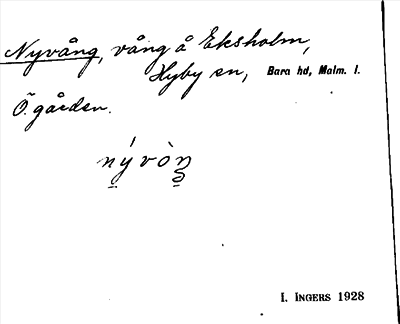 Nyvång, vång å Eksholm,
Hyby sn, Bara hd, Malm. l.
Ö. gården.
nývòn̠g
I. INGERS 1928